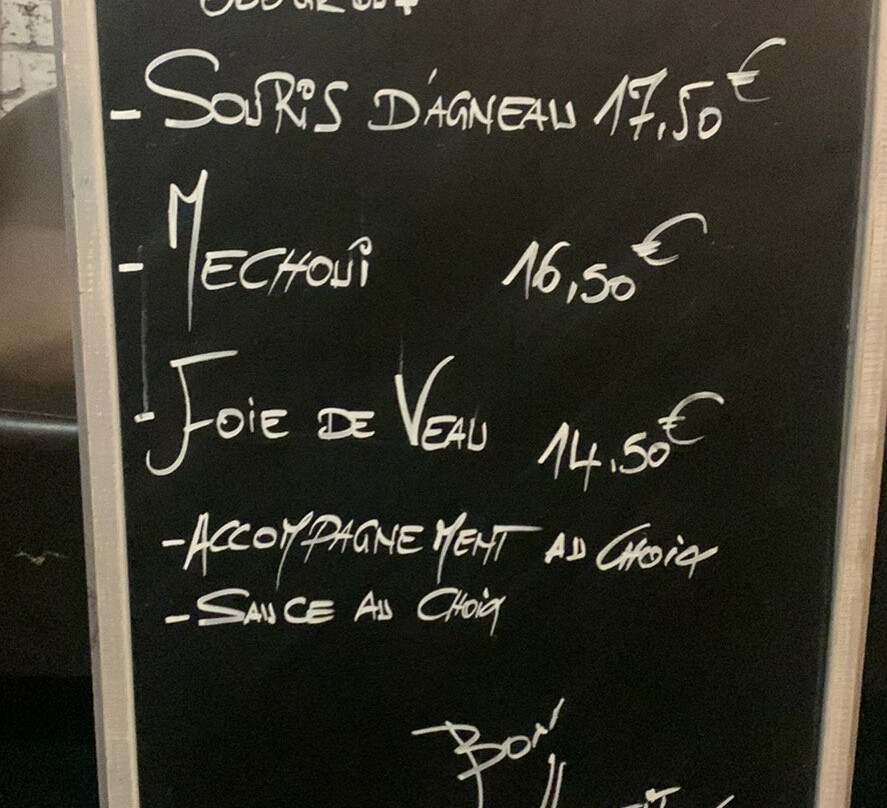 - SOURIS D'AGNEAU 17,50€
- MECHOUI 16,50€
- FOIE DE VEAU 14,50€
- ACCOMPAGNEMENT AU CHOIX
- SAUCE AU CHOIX
BON